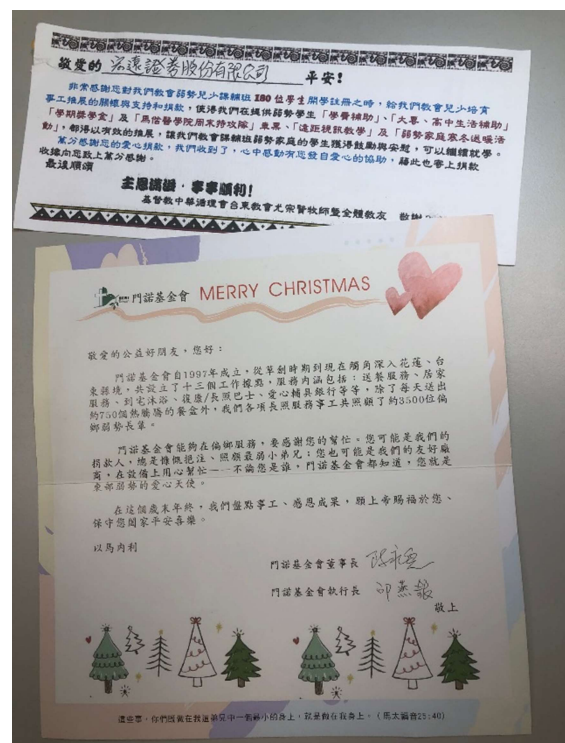 敬愛的 宏遠證券股份有限公司 平安!
非常感謝您對我們教會弱勢兒少課輔班 180 位學生開學註冊之時,給我們教會兒少培育
事工推展的關懷與支持和捐款,使得我們在提供弱勢學生「學費補助」、「大專、高中生活補助」
「學期獎學金」及「馬偕醫學院周末特攻隊」東黑、「遠距視訊教學」及「弱勢家庭寒冬送暖活
動」,都得以有效的推展,讓我們教會課輔班弱勢家庭的學生獲得鼓勵與安慰,可以繼續就學。
萬分感謝您的愛心捐款,我們收到了,心中感動有您發自愛心的協助,藉此也寄上捐款
收據向您致上萬分感謝。
最後順頌
主恩滿溢,事事順利!
基督教中華循理會台東教會尤宗賢牧師暨全體教友 敬謝
門諾基金會 MERRY CHRISTMAS
敬愛的公益好朋友、您好:
門諾基金會自1997年成立,從草創時期到現在觸角深入花蓮、台
東縣境,共設立了十三個工作據點,服務內涵包括:送餐服務、居家
服務、到宅沐浴、復康/長照巴士、愛心輔具銀行等等,除了每天送出
約750個熱騰騰的餐盒外,我們各項長照服務事工共照顧了約3500位偏
鄉弱勢長輩。
門諾基金會能夠在偏鄉服務,要感謝您的幫忙。您可能是我們的
捐款人,總是慷慨挹注、照顧最弱小弟兄;您也可能是我們的友好廠
商,在設備上用心幫忙——不論您是誰,門諾基金會都知道,您就是
東部弱勢的愛心天使。
在這個歲末年終,我們盤點事工、感恩成果,願上帝賜福於您、
保守您闔家平安喜樂。
以馬內利
門諾基金會董事長
門諾基金會執行長
敬上
這些事,你們既做在我這弟兄中一個最小的身上,就是做在我身上。(馬太福音25:40)